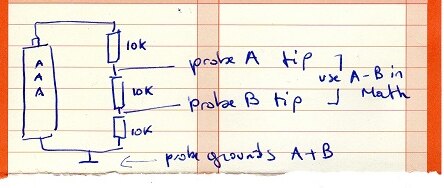 10K
A
A
A
probe A tip
use A-B in
Math
10K
probe B tip
10K
probe grounds A+B